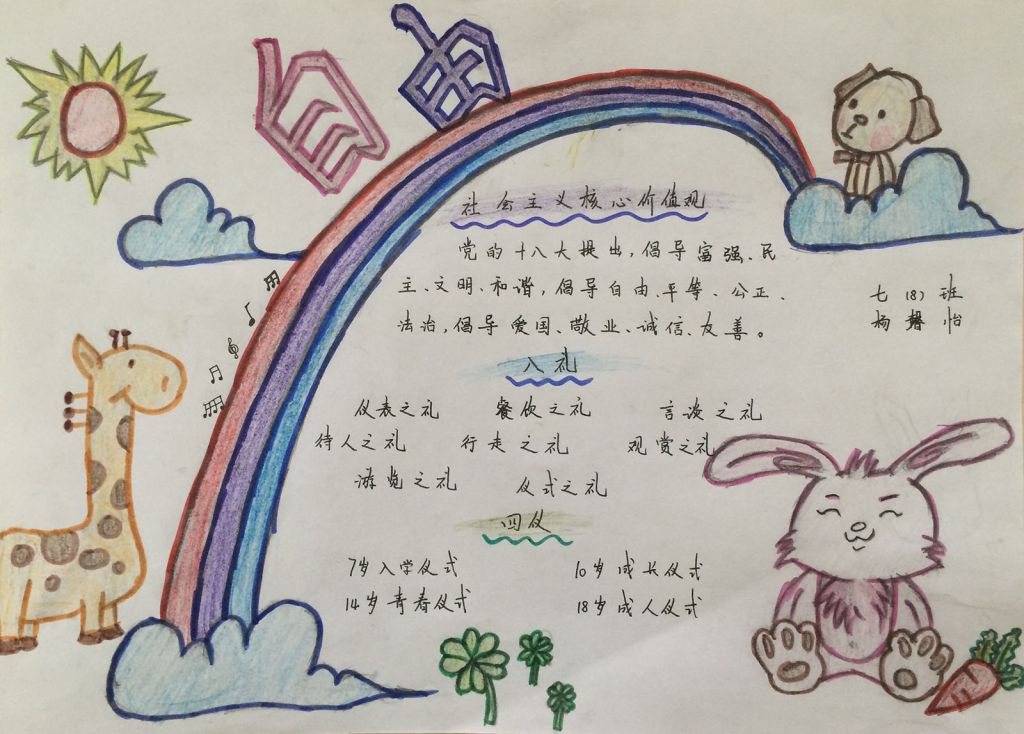 社会主义核心价值观
党的十八大提出,倡导富强、民
主、文明、和谐,倡导自由、平等、公正、
法治,倡导爱国、敬业、诚信、友善。
七(8)班
杨馨怡
入礼
仪表之礼 餐饮之礼 言谈之礼
待人之礼 行走之礼 观赏之礼
游览之礼 仪式之礼
四仪
7岁入学仪式 10岁成长仪式
14岁青春仪式 18岁成人仪式